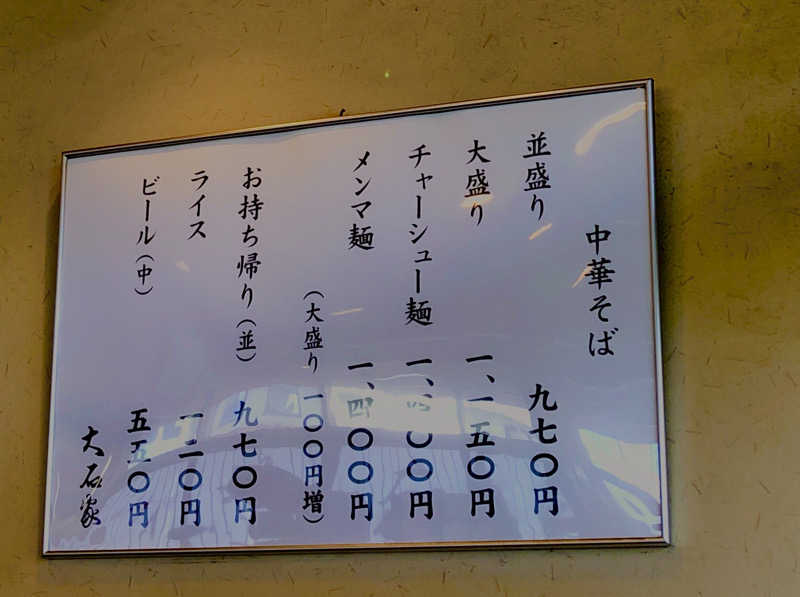 中華そば
並盛り 九七〇円
大盛り 一、一五〇円
チャーシュー麺 一、四〇〇円
メンマ麺 一、四〇〇円
（大盛り 一〇〇円増）
お持ち帰り（並） 九七〇円
ライス 一二〇円
ビール（中） 五五〇円
大石家